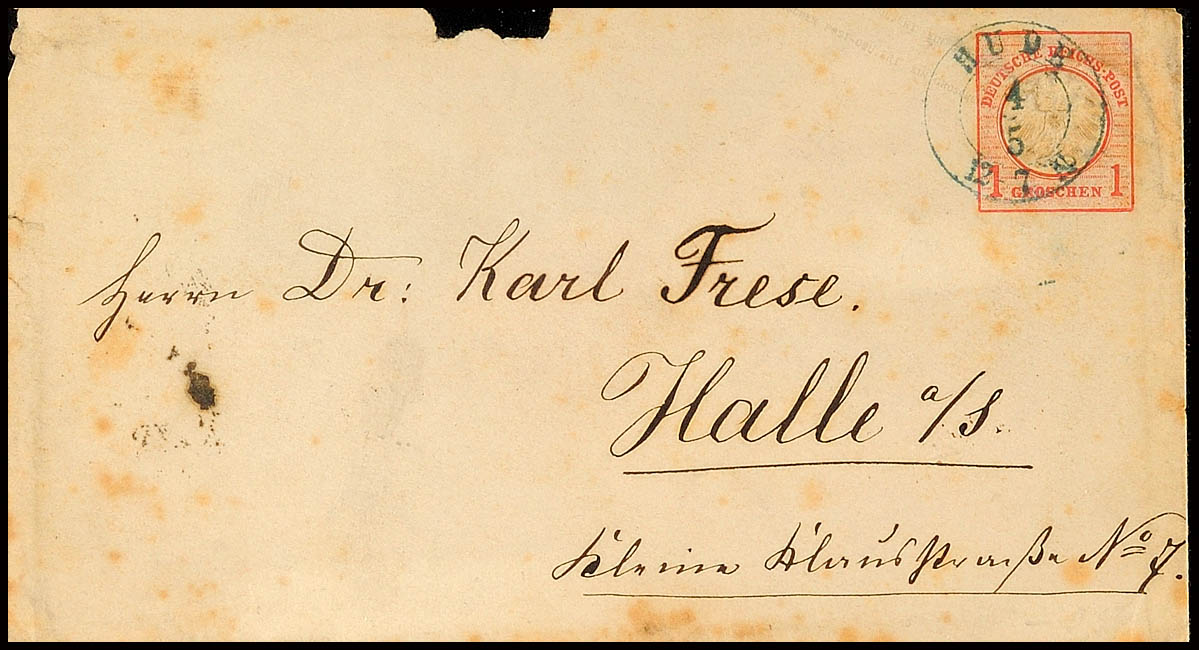 HUDE
DEUTSCHE REICHS-POST
4
5
12-7 N
1 GROSCHEN 1
Herrn Dr: Karl Frese.
Halle a/S.
Kleine Klausstraße No 7.